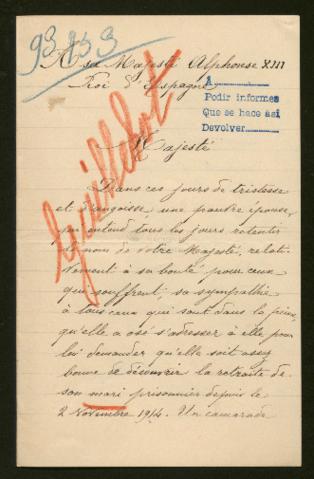 93.153
A sa Majesté Alphonse XIII
Roi d'Espagne
A
Pedir informes
Que se hace asi
Devolver
Majesté
Dans ces jours de tristesse
et d'angoisse une pauvre épouse,
qui entend tous les jours retentir
le nom de votre Majesté, relat-
ivement à sa bonté pour ceux
qui souffrent, sa sympathie
à tous ceux qui sont dans la peine,
qu'elle a osé s'adresser à elle pour
lui demander qu'elle soit assez
bonne de découvrir la retraite de
son mari prisonnier depuis le
2 Novembre 1914. Un camarade